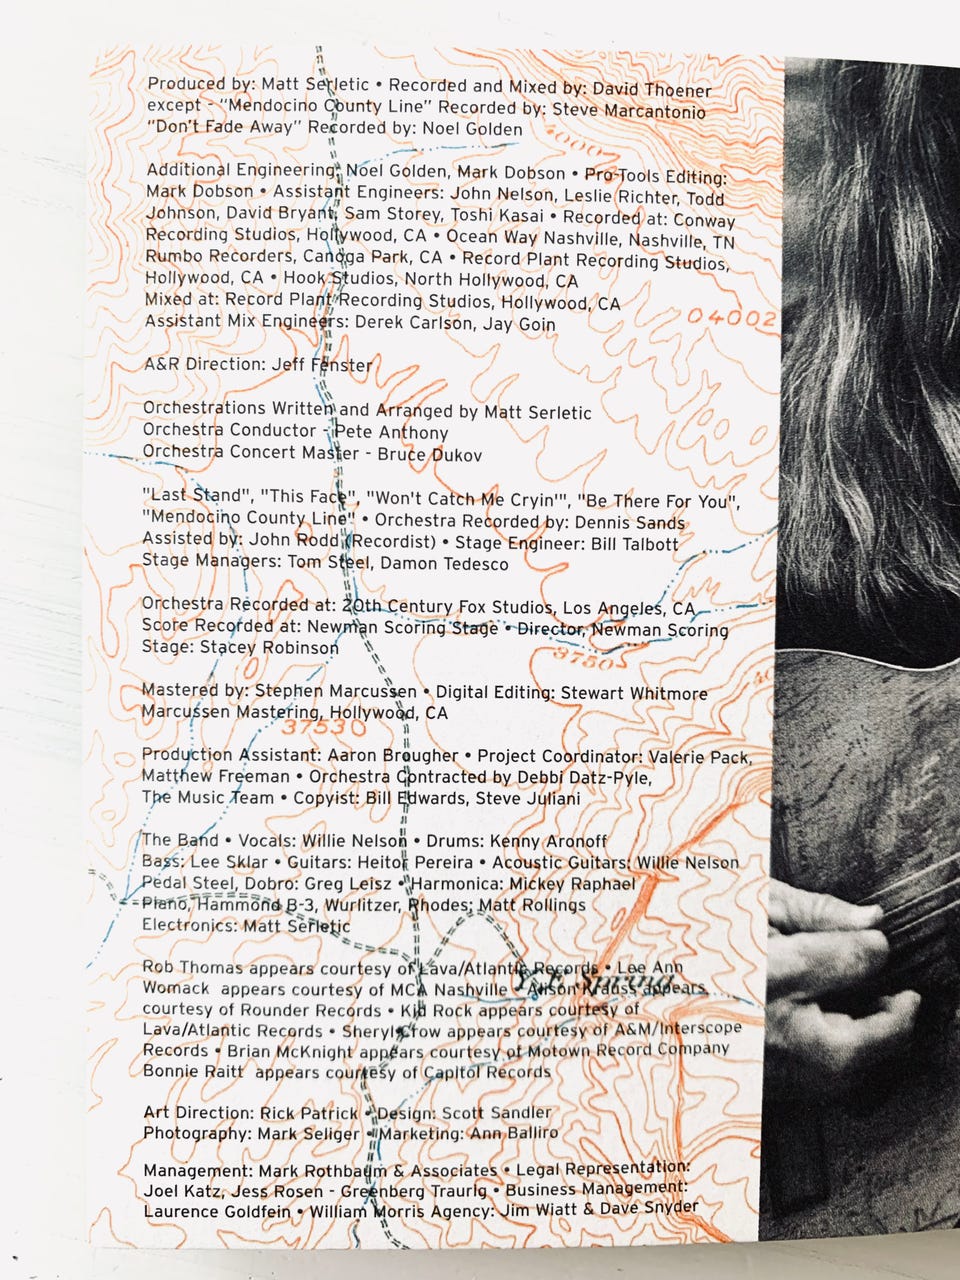 Produced by: Matt Serletic • Recorded and Mixed by: David Thoener
except - "Mendocino County Line" Recorded by: Steve Marcantonio
"Don't Fade Away" Recorded by: Noel Golden
Additional Engineering: Noel Golden, Mark Dobson • Pro-Tools Editing:
Mark Dobson • Assistant Engineers: John Nelson, Leslie Richter, Todd
Johnson, David Bryant, Sam Storey, Toshi Kasai • Recorded at: Conway
Recording Studios, Hollywood, CA • Ocean Way Nashville, Nashville, TN
Rumbo Recorders, Canoga Park, CA • Record Plant Recording Studios,
Hollywood, CA • Hook Studios, North Hollywood, CA
Mixed at: Record Plant Recording Studios, Hollywood, CA
Assistant Mix Engineers: Derek Carlson, Jay Goin
04002
A&R Direction: Jeff Fenster
Orchestrations Written and Arranged by Matt Serletic
Orchestra Conductor - Pete Anthony
Orchestra Concert Master - Bruce Dukov
"Last Stand", "This Face", "Won't Catch Me Cryin'", "Be There For You",
"Mendocino County Line" • Orchestra Recorded by: Dennis Sands
Assisted by: John Rodd (Recordist) • Stage Engineer: Bill Talbott
Stage Managers: Tom Steel, Damon Tedesco
Orchestra Recorded at: 20th Century Fox Studios, Los Angeles, CA
Score Recorded at: Newman Scoring Stage • Director, Newman Scoring
Stage: Stacey Robinson
37505
Mastered by: Stephen Marcussen • Digital Editing: Stewart Whitmore
Marcussen Mastering, Hollywood, CA
37530
Production Assistant: Aaron Brougher • Project Coordinator: Valerie Pack,
Matthew Freeman • Orchestra Contracted by Debbi Datz-Pyle,
The Music Team • Copyist: Bill Edwards, Steve Juliani
The Band • Vocals: Willie Nelson • Drums: Kenny Aronoff
Bass: Lee Sklar • Guitars: Heitor Pereira • Acoustic Guitars: Willie Nelson
Pedal Steel, Dobro: Greg Leisz • Harmonica: Mickey Raphael
Piano, Hammond B-3, Wurlitzer, Rhodes: Matt Rollings
Electronics: Matt Serletic
Rob Thomas appears courtesy of Lava/Atlantic Records • Lee Ann
Womack appears courtesy of MCA Nashville • Alison Krauss appears
courtesy of Rounder Records • Kid Rock appears courtesy of
Lava/Atlantic Records • Sheryl Crow appears courtesy of A&M/Interscope
Records • Brian McKnight appears courtesy of Motown Record Company
Bonnie Raitt appears courtesy of Capitol Records
Art Direction: Rick Patrick • Design: Scott Sandler
Photography: Mark Seliger • Marketing: Ann Balliro
Management: Mark Rothbaum & Associates • Legal Representation:
Joel Katz, Jess Rosen - Greenberg Traurig • Business Management:
Laurence Goldfein • William Morris Agency: Jim Wiatt & Dave Snyder